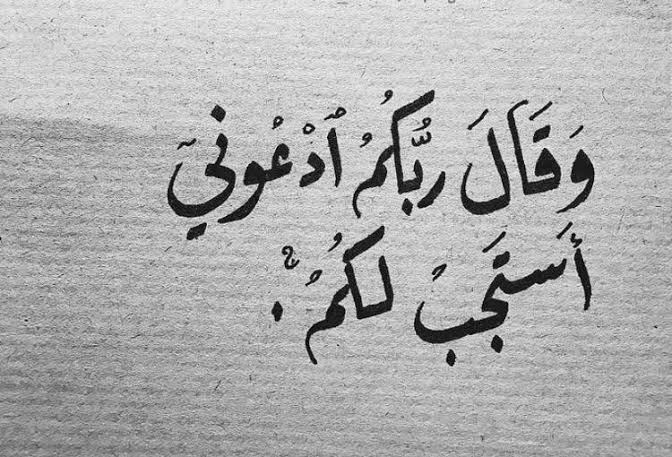 وَقَالَ رَبُّكُمُ ٱدْعُونِيٓ
أَسْتَجِبْ لَكُمْ